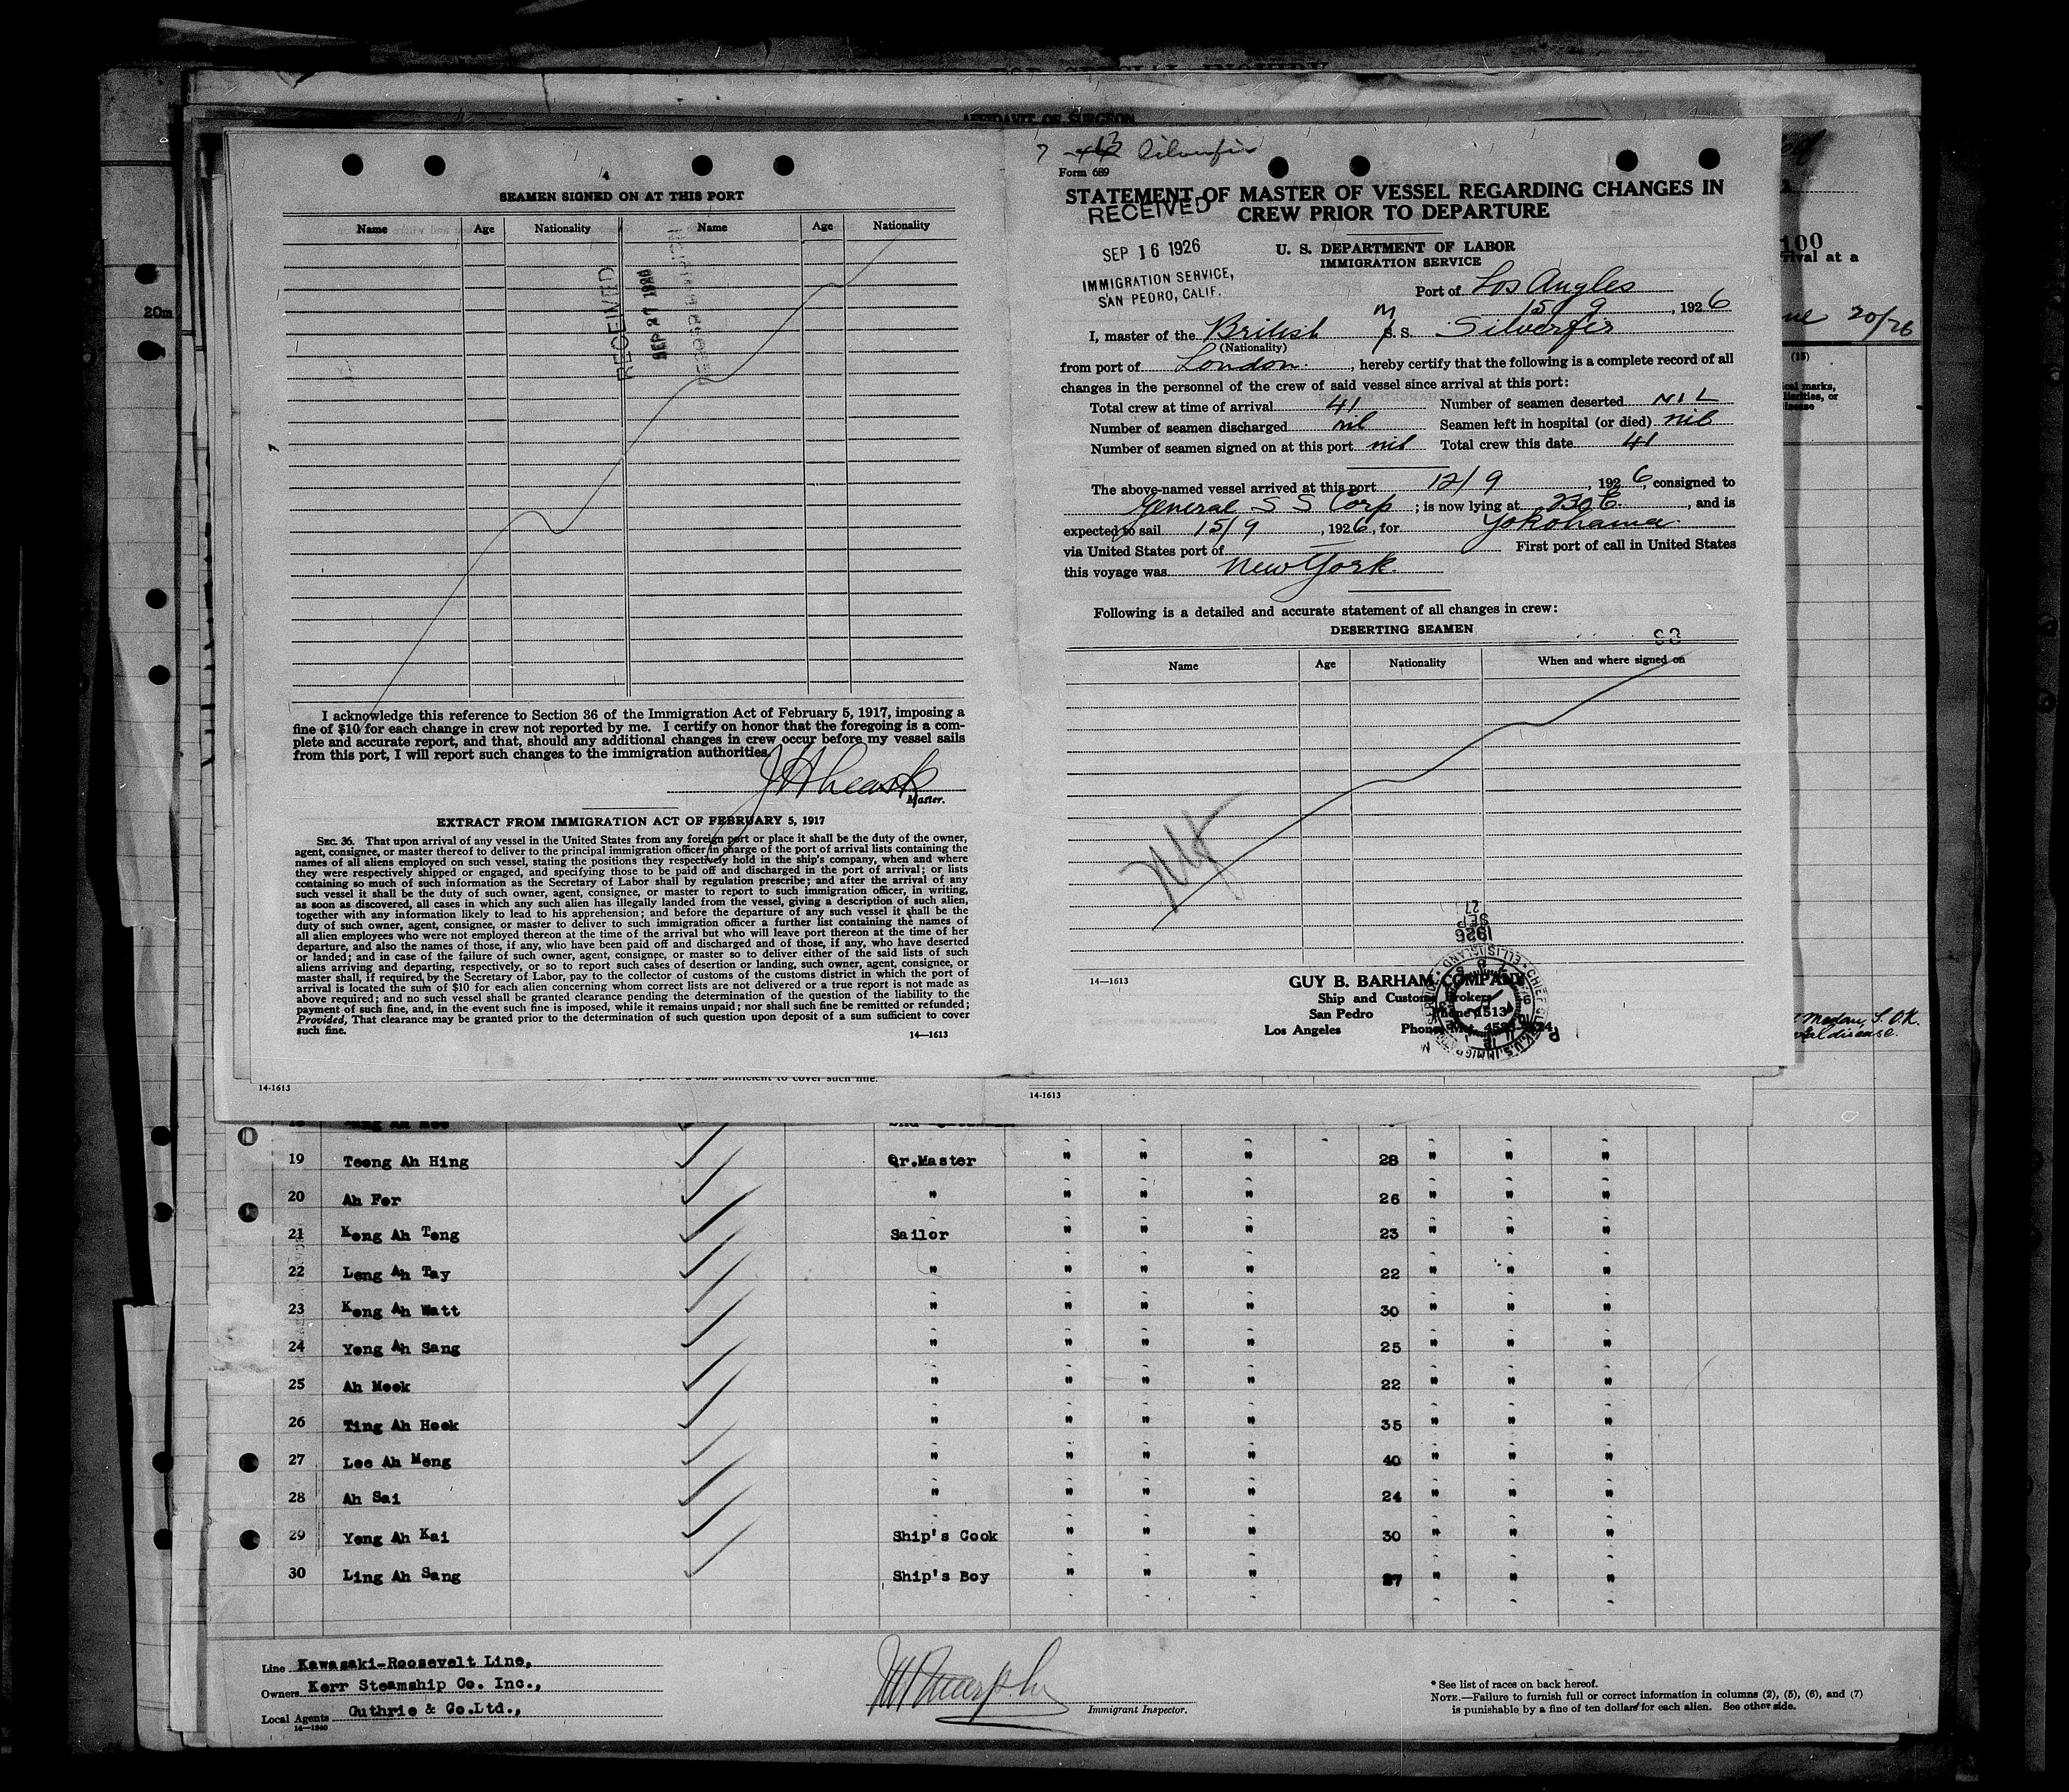 AFFIDAVIT OF SURGEON
SEAMEN SIGNED ON AT THIS PORT
Name Age Nationality Name Age Nationality
RECEIVED
SEP 27 1926
I acknowledge this reference to Section 36 of the Immigration Act of February 5, 1917, imposing a
fine of $10 for each change in crew not reported by me. I certify on honor that the foregoing is a com-
plete and accurate report, and that, should any additional changes in crew occur before my vessel sails
from this port, I will report such changes to the immigration authorities.
Master.
EXTRACT FROM IMMIGRATION ACT OF FEBRUARY 5, 1917
SEC. 36. That upon arrival of any vessel in the United States from any foreign port or place it shall be the duty of the owner,
agent, consignee, or master thereof to deliver to the principal immigration officer in charge of the port of arrival lists containing the
names of all aliens employed on such vessel, stating the positions they respectively hold in the ship's company, when and where
they were respectively shipped or engaged, and specifying those to be paid off and discharged in the port of arrival; or lists
containing so much of such information as the Secretary of Labor shall by regulation prescribe; and after the arrival of any
such vessel it shall be the duty of such owner, agent, consignee, or master to report to such immigration officer, in writing,
as soon as discovered, all cases in which any such alien has illegally landed from the vessel, giving a description of such alien,
together with any information likely to lead to his apprehension; and before the departure of any such vessel it shall be the
duty of such owner, agent, consignee, or master to deliver to such immigration officer a further list containing the names of
all alien employees who were not employed thereon at the time of the arrival but who will leave port thereon at the time of her
departure, and also the names of those, if any, who have been paid off and discharged and of those, if any, who have deserted
or landed; and in case of the failure of such owner, agent, consignee, or master so to deliver either of the said lists of such
aliens arriving and departing, respectively, or so to report such cases of desertion or landing, such owner, agent, consignee, or
master shall, if required by the Secretary of Labor, pay to the collector of customs of the customs district in which the port of
arrival is located the sum of $10 for each alien concerning whom correct lists are not delivered or a true report is not made as
above required; and no such vessel shall be granted clearance pending the determination of the question of the liability to the
payment of such fine, and, in the event such fine is imposed, while it remains unpaid; nor shall such fine be remitted or refunded;
Provided, That clearance may be granted prior to the determination of such question upon deposit of a sum sufficient to cover
such fine.
14—1613
13 Silverfir
Form 689
STATEMENT OF MASTER OF VESSEL REGARDING CHANGES IN
CREW PRIOR TO DEPARTURE
RECEIVED
SEP 16 1926
IMMIGRATION SERVICE,
SAN PEDRO, CALIF.
U. S. DEPARTMENT OF LABOR
IMMIGRATION SERVICE
Port of Los Angles
15 9, 1926
I, master of the British M S. S. Silverfir
(Nationality)
from port of London., hereby certify that the following is a complete record of all
changes in the personnel of the crew of said vessel since arrival at this port:
Total crew at time of arrival 41 Number of seamen deserted NIL
Number of seamen discharged nil Seamen left in hospital (or died) nil
Number of seamen signed on at this port nil Total crew this date 41
The above-named vessel arrived at this port 12/9, 1926, consigned to
General S S Corp; is now lying at 230 E, and is
expected to sail 15/9, 1926, for Yokohama
via United States port of — First port of call in United States
this voyage was New York.
Following is a detailed and accurate statement of all changes in crew:
DESERTING SEAMEN
93
Name Age Nationality When and where signed on
1926
SEP
27
14—1613
GUY B. BARHAM COMPANY
Ship and Customs Brokers
San Pedro Phone 1513
Los Angeles
20m
100
rival at a
20/26
(15)
14-1613
14-1613
19 Teong Ah Hing Qr.Master " " " 28 " " "
20 Ah For " " " " 26 " " "
21 Keng Ah Tong Sailor " " " 23 " " "
22 Leng Ah Tay " " " " 22 " " "
23 Keng Ah Watt " " " " 30 " " "
24 Yeng Ah Sang " " " " 25 " " "
25 Ah Meek " " " " 22 " " "
26 Ting Ah Heek " " " " 35 " " "
27 Lee Ah Meng " " " " 40 " " "
28 Ah Sai " " " " 24 " " "
29 Yeng Ah Kai Ship's Cook " " " 30 " " "
30 Ling Ah Sang Ship's Boy " " " 27 " " "
Line Kawasaki-Roosevelt Line,
Owners Kerr Steamship Co. Inc.,
Local Agents Guthrie & Co.Ltd.,
14—1240
Immigrant Inspector.
* See list of races on back hereof.
NOTE.—Failure to furnish full or correct information in columns (2), (5), (6), and (7)
is punishable by a fine of ten dollars for each alien. See other side.